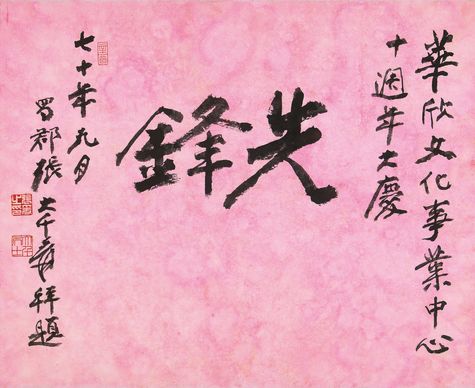 華欣文化事業中心
十週年大慶
先鋒
七十年九月
蜀郡張大千爰拜題